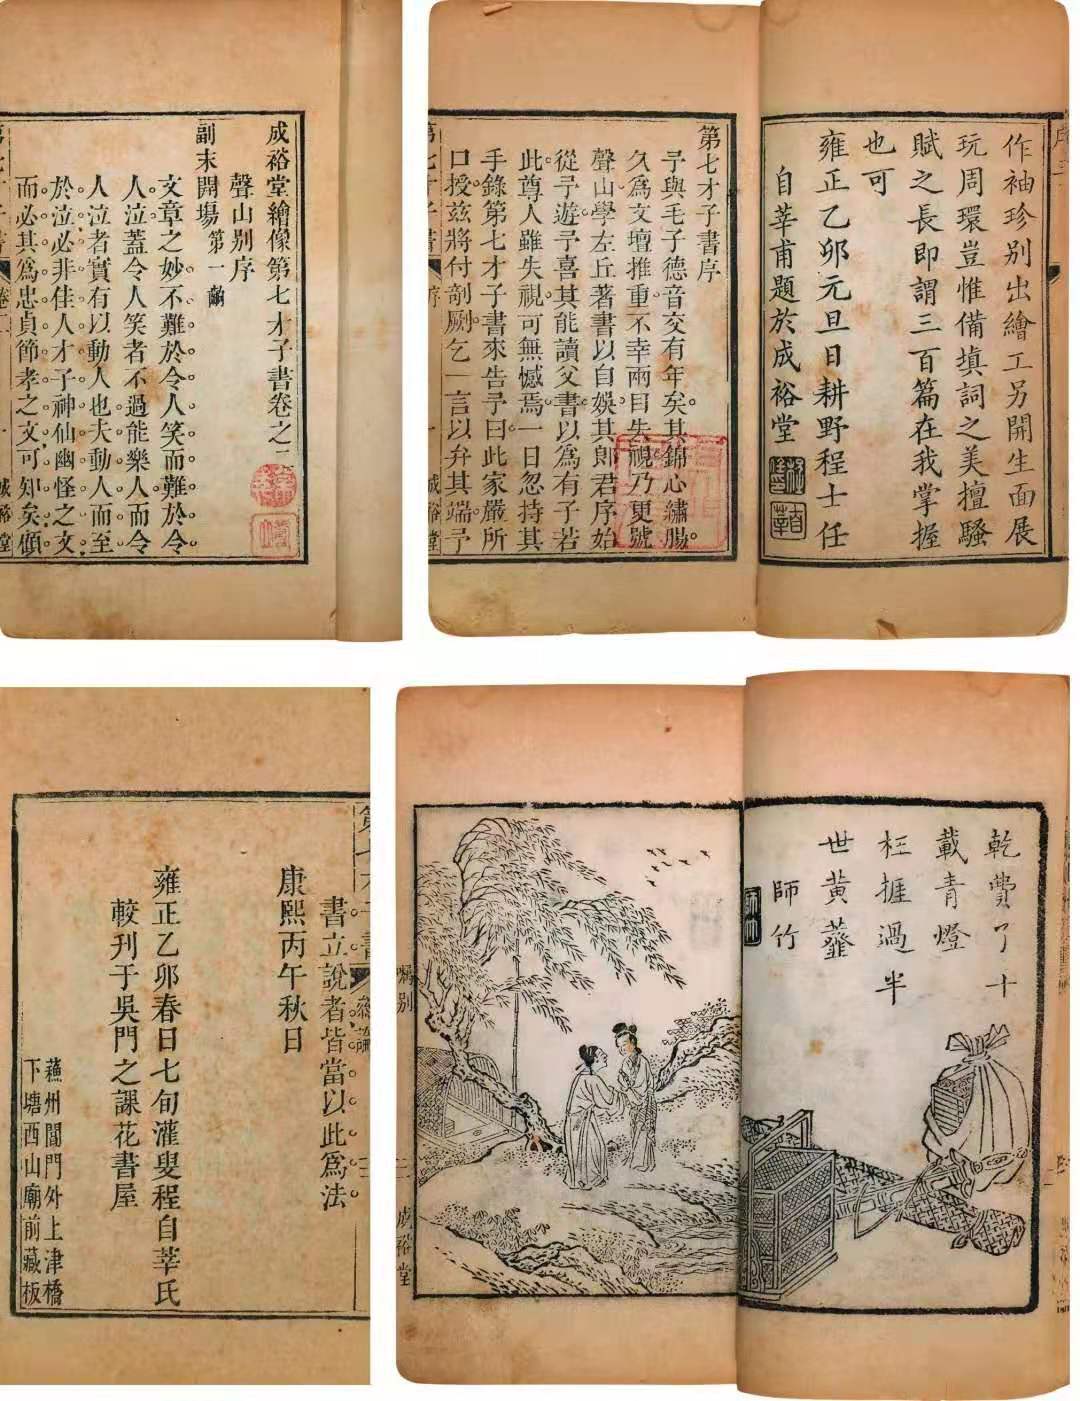 成裕堂繪像第七才子書卷之一
聲山別序
副末開場第一齣
文章之妙不難於令人笑而難於令
人泣蓋令人笑者不過能樂人而令
人泣者實有以動人也夫動人而至
於泣必非佳人才子神仙幽怪之文
而必其為忠貞節孝之文可知矣顧
作袖珍別出繪工另開生面展
玩周環豈惟備填詞之美擅騷
賦之長即謂三百篇在我掌握
也可
雍正乙卯元旦日耕野程士任
自莘甫題於成裕堂
第七才子書序
予與毛子德音交有年矣其錦心繡腸
久為文壇推重不幸兩目失視乃更號
聲山學左丘著書以自娛其郎君序始
從予遊予喜其能讀父書以為有子若
此尊人雖失視可無憾焉一日忽持其
手錄第七才子書來告予曰此家嚴所
口授茲將付剞劂乞一言以弁其端予
第七才子書
序
一
成裕堂
書立說者皆當以此為法
康熙丙午秋日
雍正乙卯春日七旬灌叟程自莘氏
較刊于吳門之課花書屋
蘇州閶門外上津橋
下塘西山廟前藏板
乾費了十
載青燈
枉捱過半
世黃虀
師竹
囑別
二
成裕堂